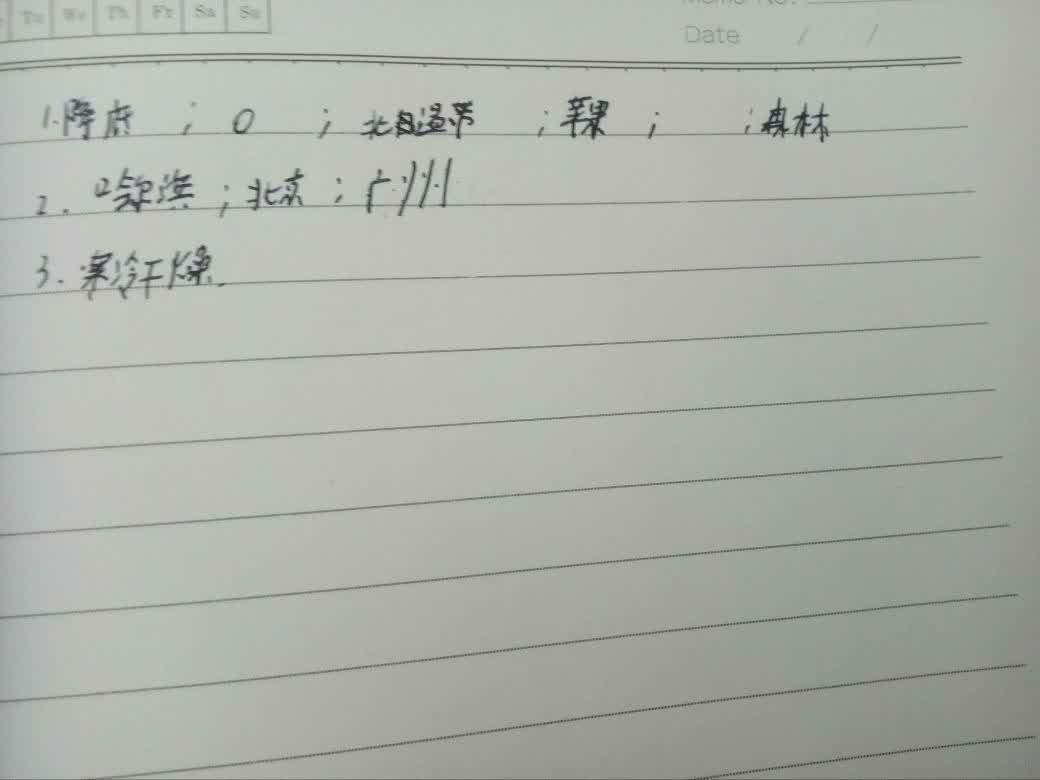 Tu We Th Fr Sa Su
Memo No.
Date / /
1.降府 ; 0 ; 北温带 ; 苹果 ; ; 森林
2. 哈尔滨 ; 北京 ; 广州
3. 寒冷干燥.